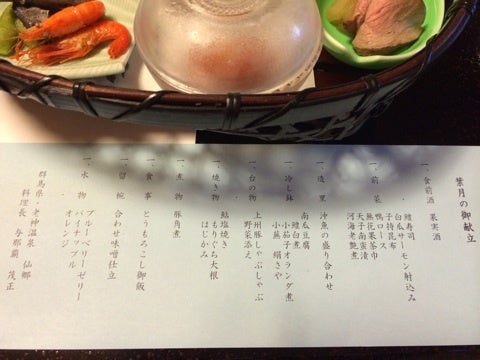 葉月の御献立
一、食前酒 果実酒
一、前菜 鱧寿司
白瓜サーモン射込み
子持昆布
鴨ロース
無花果茶巾
天子南蛮漬
河海老艶煮
一、造里 沖魚の盛り合わせ
一、冷し鉢 南瓜豆腐
鱧白煮
小茄子オランダ煮
小蕪 絹さや
一、台の物 上州豚しゃぶしゃぶ
野菜添え
一、焼き物 鮎塩焼き
もりぐち大根
はじかみ
一、煮物 豚角煮
一、食事 とうもろこし御飯
一、留椀 合わせ味噌仕立
一、水物 ブルーベリーゼリー
パイナップル
オレンジ
群馬県・老神温泉 仙郷
料理長 与那覇 茂正